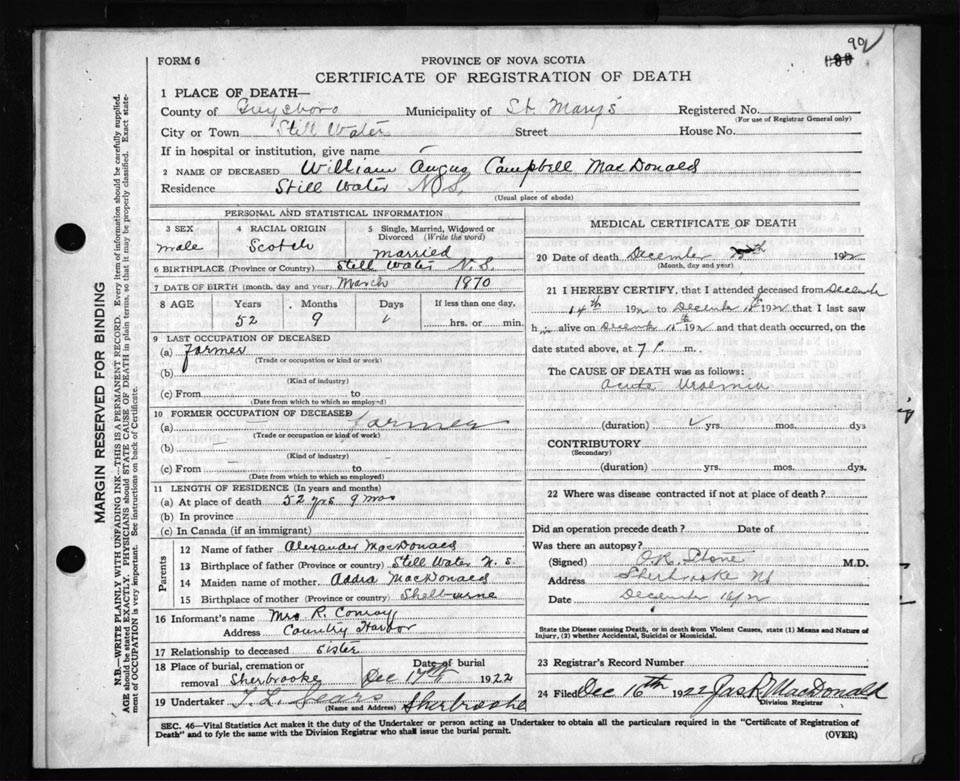 90
FORM 6
PROVINCE OF NOVA SCOTIA
CERTIFICATE OF REGISTRATION OF DEATH
1 PLACE OF DEATH—
County of Guysboro Municipality of St. Mary's Registered No.
(For use of Registrar General only)
City or Town Still Water Street House No.
If in hospital or institution, give name
2 NAME OF DECEASED William Angus Campbell MacDonald
Residence Still Water N.S.
(Usual place of abode)
PERSONAL AND STATISTICAL INFORMATION
3 SEX male
4 RACIAL ORIGIN Scotch
5 Single, Married, Widowed or Divorced (Write the word) Married
6 BIRTHPLACE (Province or Country) Still Water N.S.
7 DATE OF BIRTH (month, day and year) March 1870
8 AGE Years Months Days If less than one day,
52 9 hrs. or min.
9 LAST OCCUPATION OF DECEASED
(a) Farmer
(Trade or occupation or kind or work)
(b)
(Kind of industry)
(c) From to
(Date from which to which so employed)
10 FORMER OCCUPATION OF DECEASED
(a) farmer
(Trade or occupation or kind of work)
(b)
(Kind of industry)
(c) From to
(Date from which to which so employed)
11 LENGTH OF RESIDENCE (In years and months)
(a) At place of death 52 yrs 9 mos
(b) In province
(c) In Canada (if an immigrant)
Parents
12 Name of father Alexander MacDonald
13 Birthplace of father (Province or country) Still Water N.S.
14 Maiden name of mother MacDonald
15 Birthplace of mother (Province or country) Shelburne
16 Informant's name Mrs R. Conroy
Address Country Harbor
17 Relationship to deceased sister
18 Place of burial, cremation or removal Sherbrooke
Date of burial Dec 17th 1922
19 Undertaker Sears Sherbrooke
(Name and Address)
MEDICAL CERTIFICATE OF DEATH
20 Date of death December 192
(Month, day and year)
21 I HEREBY CERTIFY, that I attended deceased from December
14th 192 to December 192 that I last saw
h alive on 192 and that death occurred, on the
date stated above, at 7 P. m.
The CAUSE OF DEATH was as follows:
acute Uraemia
(duration) yrs. mos. dys
CONTRIBUTORY
(Secondary)
(duration) yrs. mos. dys.
22 Where was disease contracted if not at place of death?
Did an operation precede death? Date of
Was there an autopsy?
(Signed) Stone M.D.
Address Sherbrooke NS
Date December 16/22
State the Disease causing Death, or in death from Violent Causes, state (1) Means and Nature of
Injury, (2) whether Accidental, Suicidal or Homicidal.
23 Registrar's Record Number
24 Filed Dec 16th 1922 MacDonald
Division Registrar
SEC. 46—Vital Statistics Act makes it the duty of the Undertaker or person acting as Undertaker to obtain all the particulars required in the "Certificate of Registration of
Death" and to fyle the same with the Division Registrar who shall issue the burial permit.
(OVER)
MARGIN RESERVED FOR BINDING
N.B.—WRITE PLAINLY WITH UNFADING INK—THIS IS A PERMANENT RECORD. Every item of information should be carefully supplied.
AGE should be stated EXACTLY. PHYSICIANS should STATE CAUSE OF DEATH in plain terms, so that it may be properly classified. Exact state-
ment of OCCUPATION is very important. See instructions on back of Certificate.